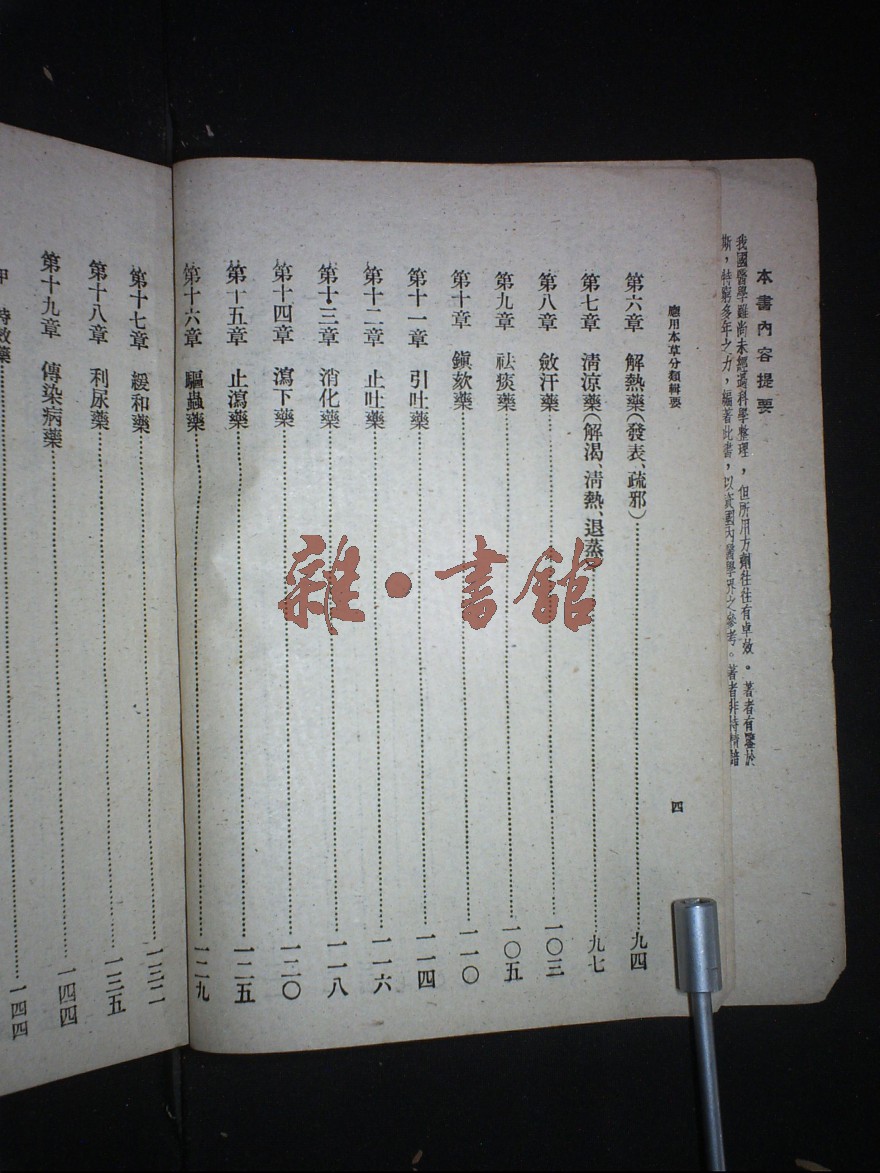 本書內容提要
我國醫學雖尚未經過科學整理，但所用方劑往往有卓效。著者有鑒於
斯，特窮多年之力，編著此書，以資國內醫學界之參考。著者非特
應用本草分類輯要
四
第六章 解熱藥(發表、疏邪)……九四
第七章 淸涼藥(解渴、淸熱、退蒸)……九七
第八章 斂汗藥……一〇三
第九章 祛痰藥……一〇五
第十章 鎭欬藥……一一〇
第十一章 引吐藥……一一四
第十二章 止吐藥……一一六
第十三章 消化藥……一一八
第十四章 瀉下藥……一二〇
第十五章 止瀉藥……一二五
第十六章 驅蟲藥……一二九
第十七章 緩和藥……一三二
第十八章 利尿藥……一三五
第十九章 傳染病藥……一四四
甲 特效藥……一四四
雜·書館